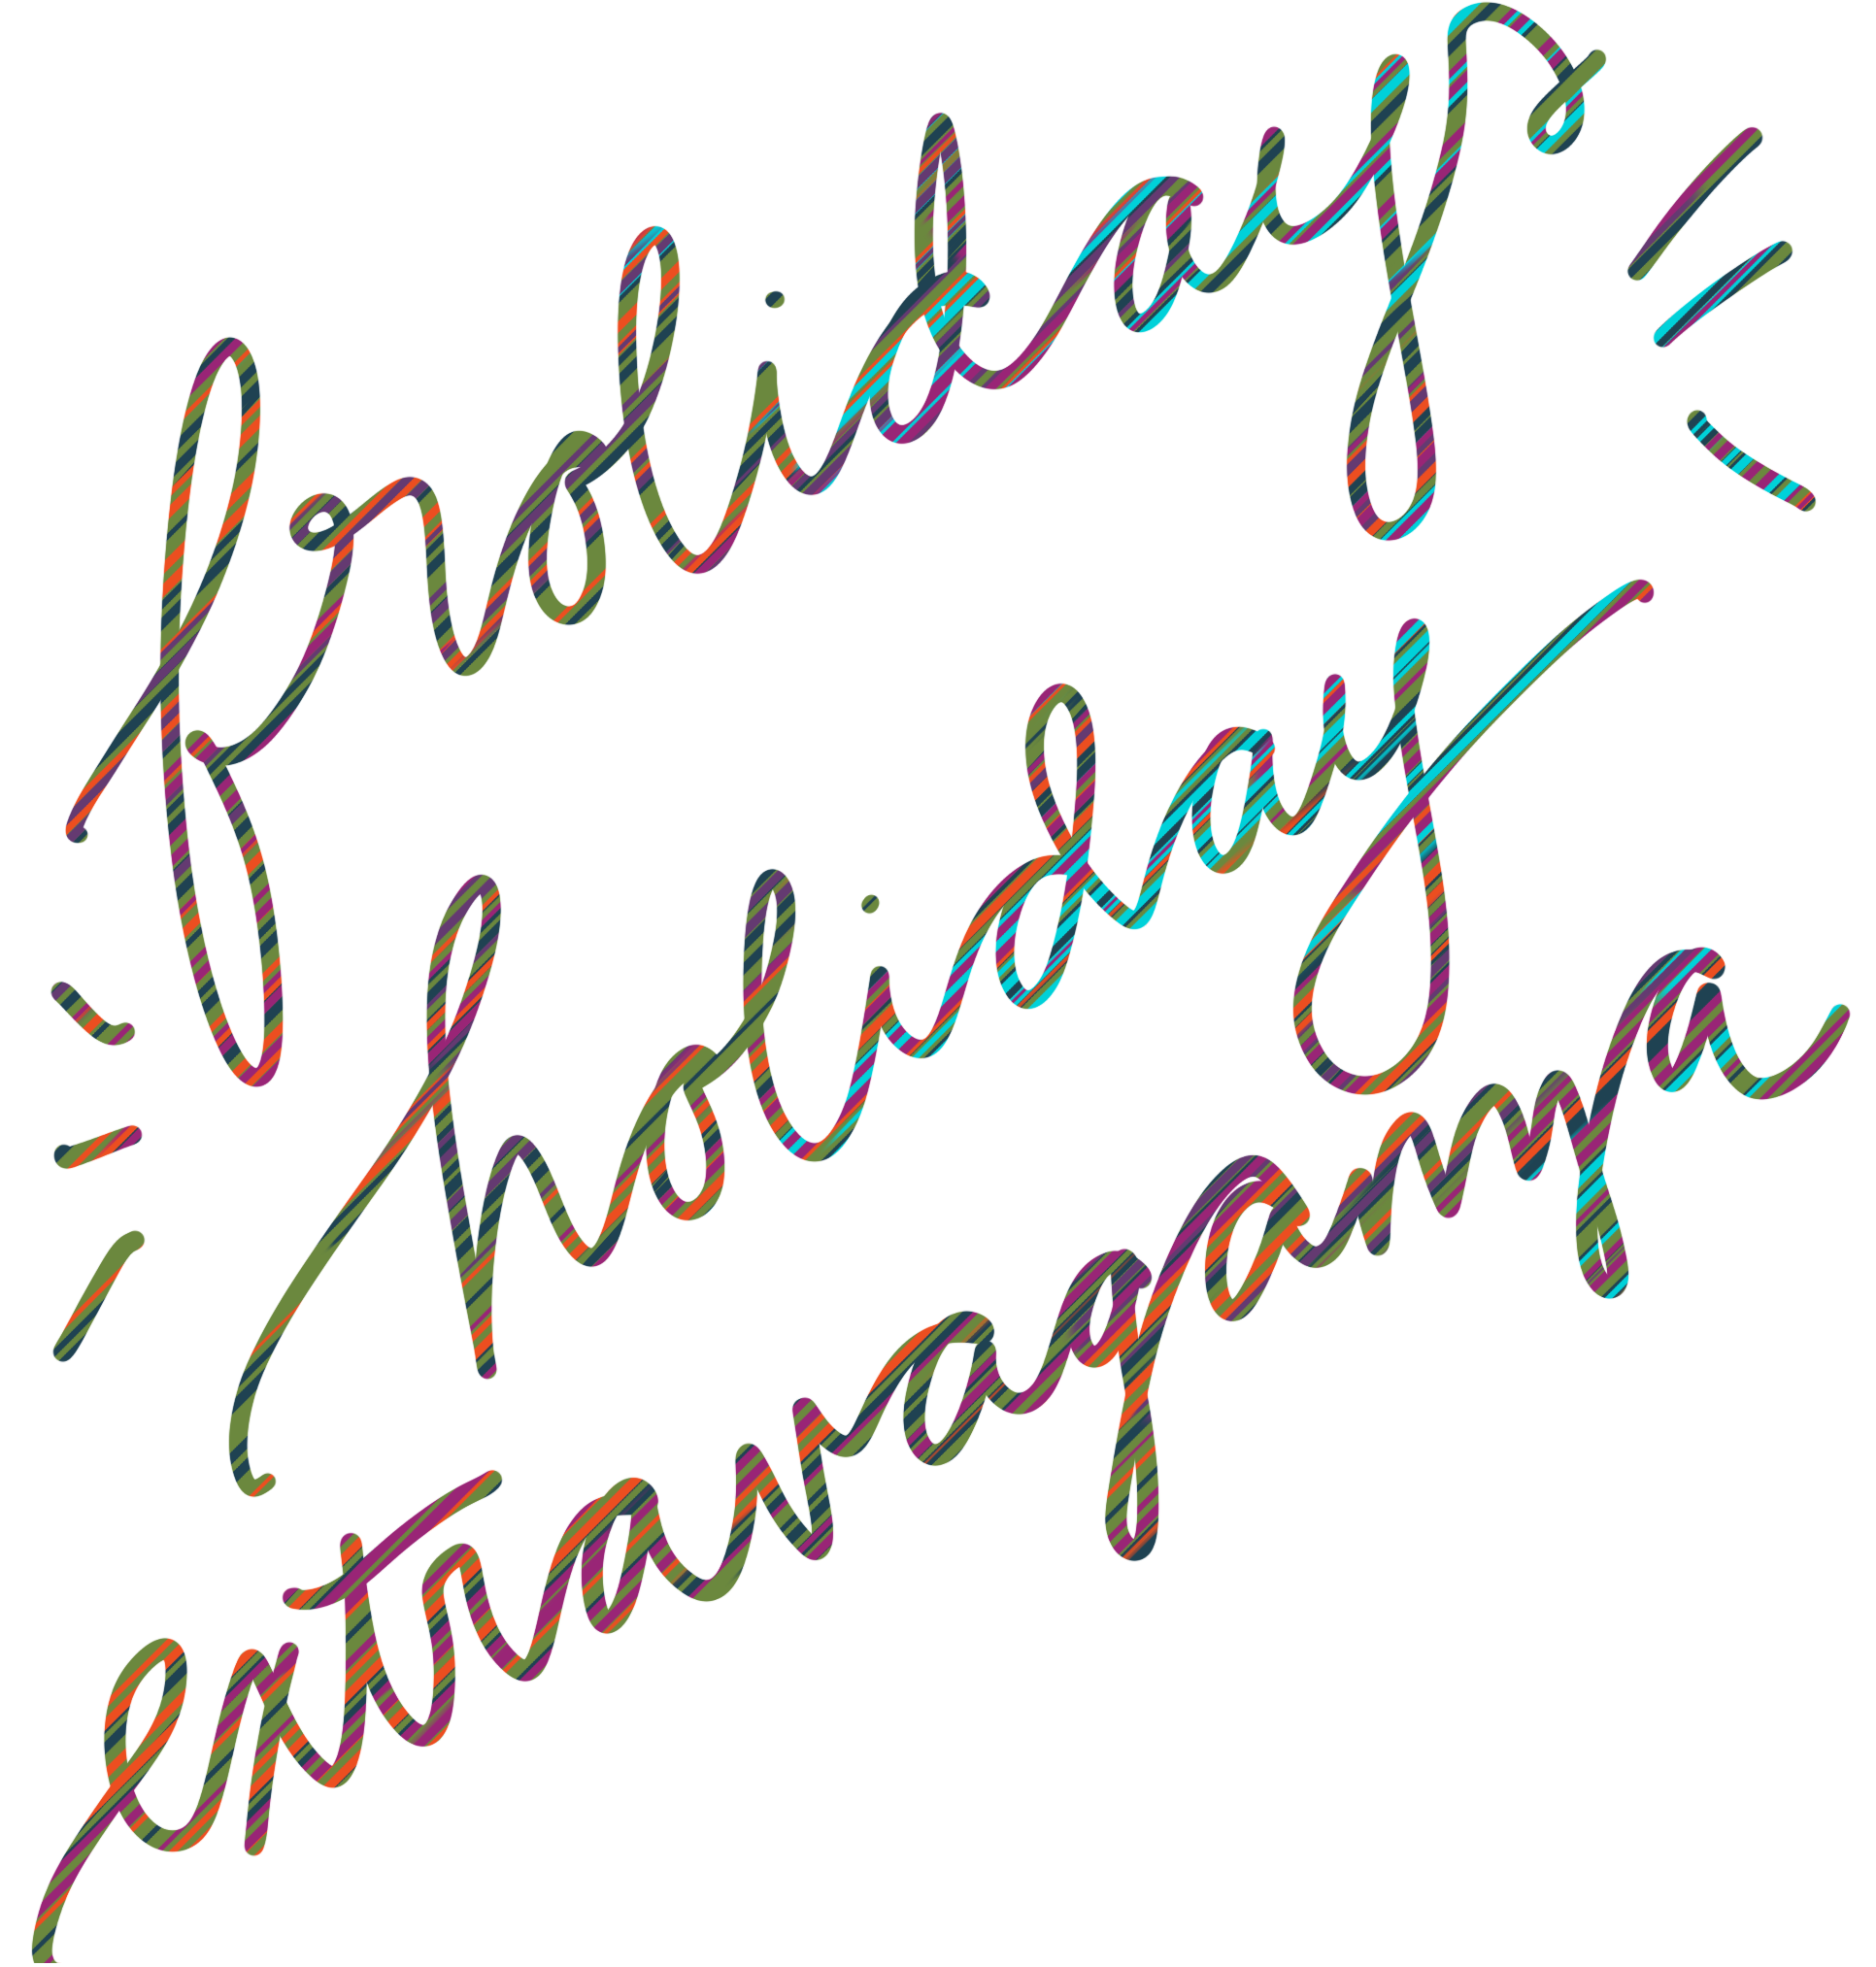 froliday
holiday
extravaganza